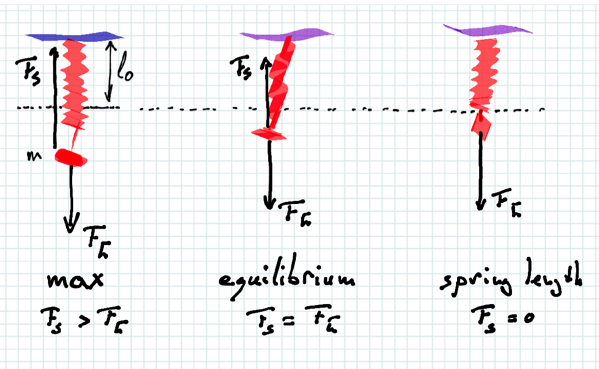 Fs
l₀
m
Fg
max
Fs > Fg
Fs
Fg
equilibrium
Fs = Fg
Fg
spring length
Fs = 0